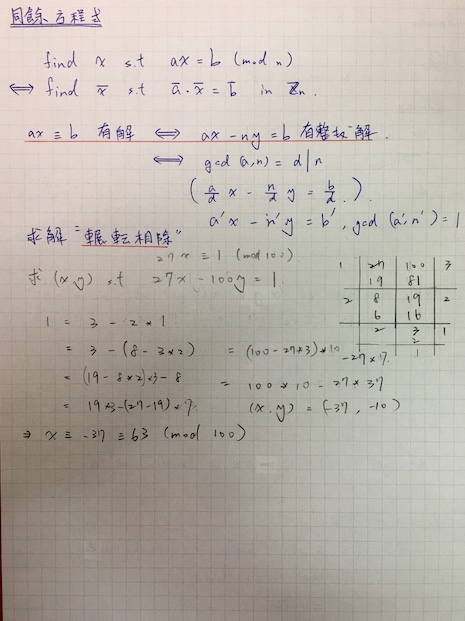 同餘方程式
find x s.t ax = b (mod n)
⟺ find x̄ s.t ā·x̄ = b̄ in ℤn.
ax ≡ b 有解 ⟺ ax - ny = b 有整数解.
⟺ gcd (a,n) = d | n
( a/d x - n/d y = b/d . ).
a'x - n'y = b', gcd (a',n') = 1
求解 "輾転相除"
27x ≡ 1 (mod 100)
求 (x,y) s.t 27x - 100y = 1
1 27 100 3
19 81
2 8 19 2
6 16
2 3 1
2
1
1 = 3 - 2*1
= 3 - (8 - 3*2) = (100 - 27*3)*10 - 27*7
= (19 - 8*2)*3 - 8 = 100*10 - 27*37
= 19*3 - (27-19)*7 (x,y) = (-37, -10)
⇒ x ≡ -37 ≡ 63 (mod 100)